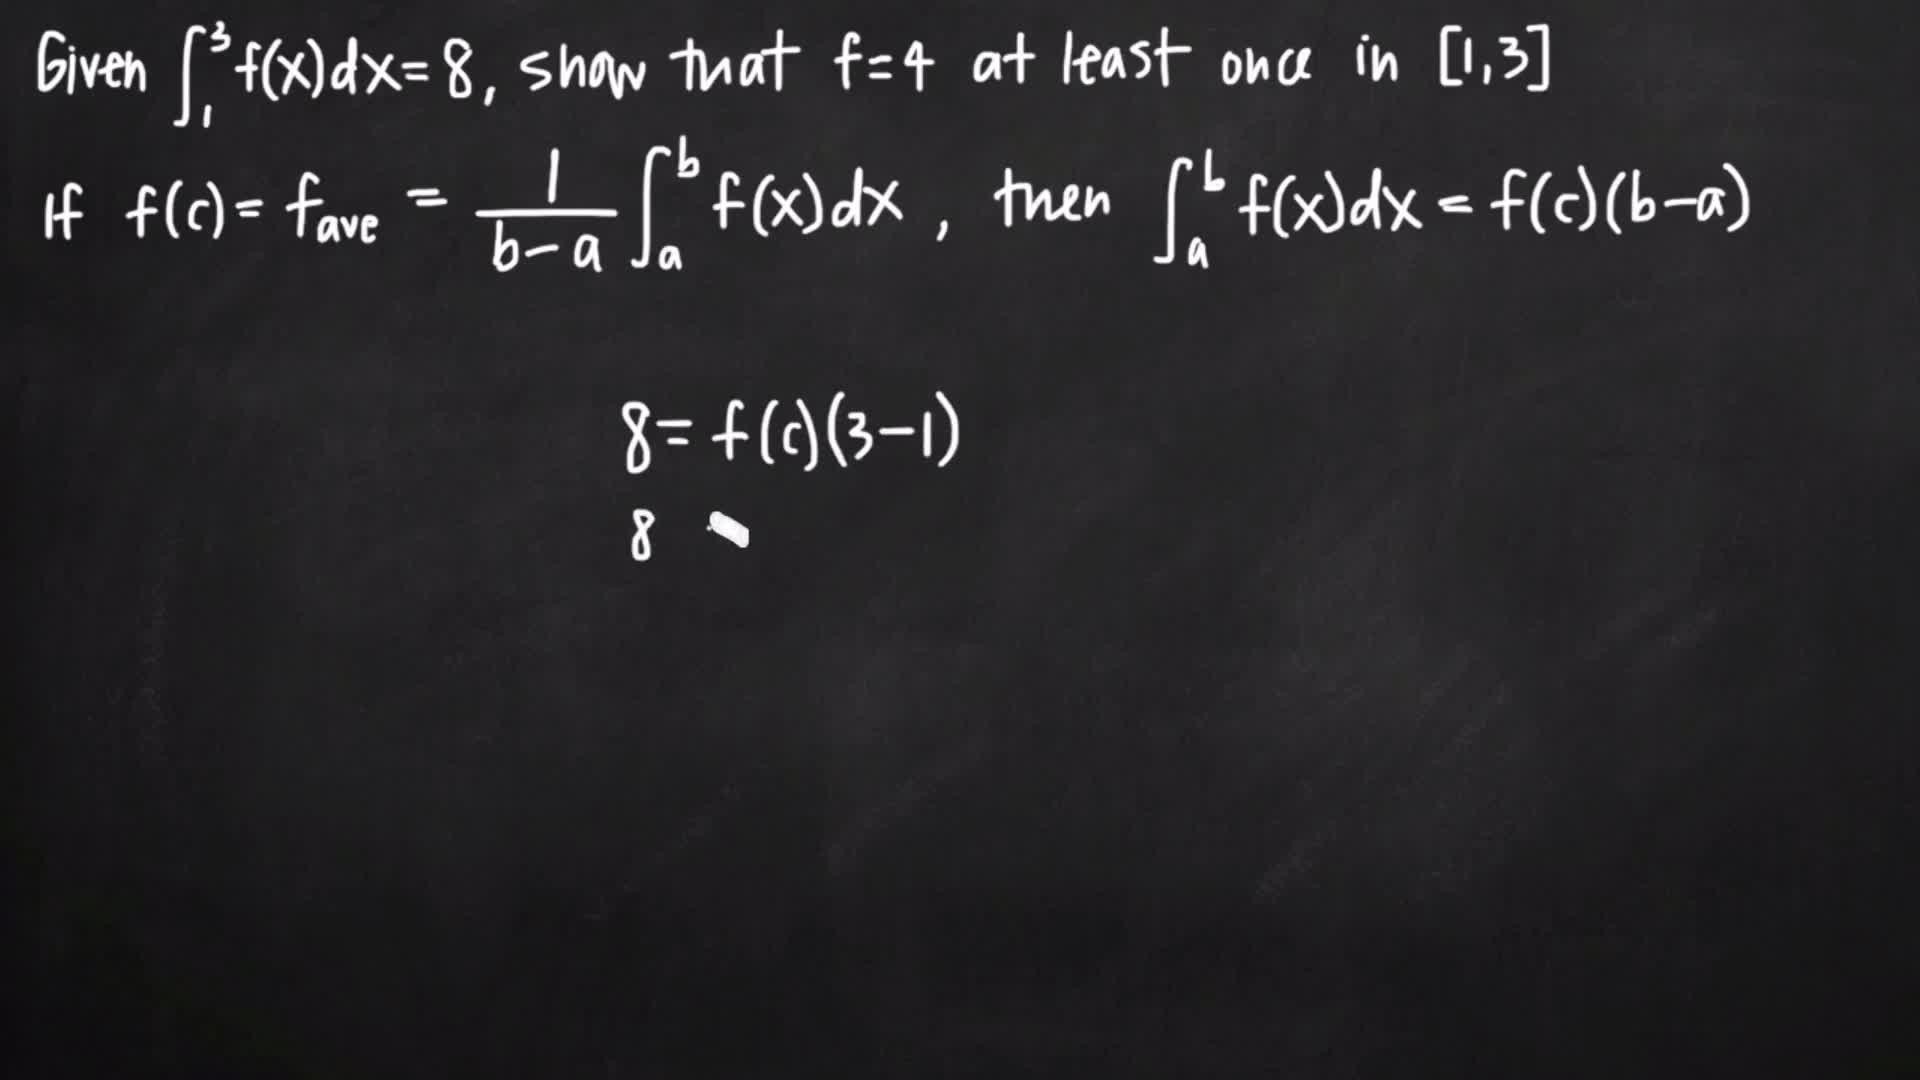 Given ∫₁³ f(x)dx = 8, show that f=4 at least once in [1,3]
If f(c) = f_ave = 1/(b-a) ∫ₐᵇ f(x)dx, then ∫ₐᵇ f(x)dx = f(c)(b-a)
8 = f(c)(3-1)
8